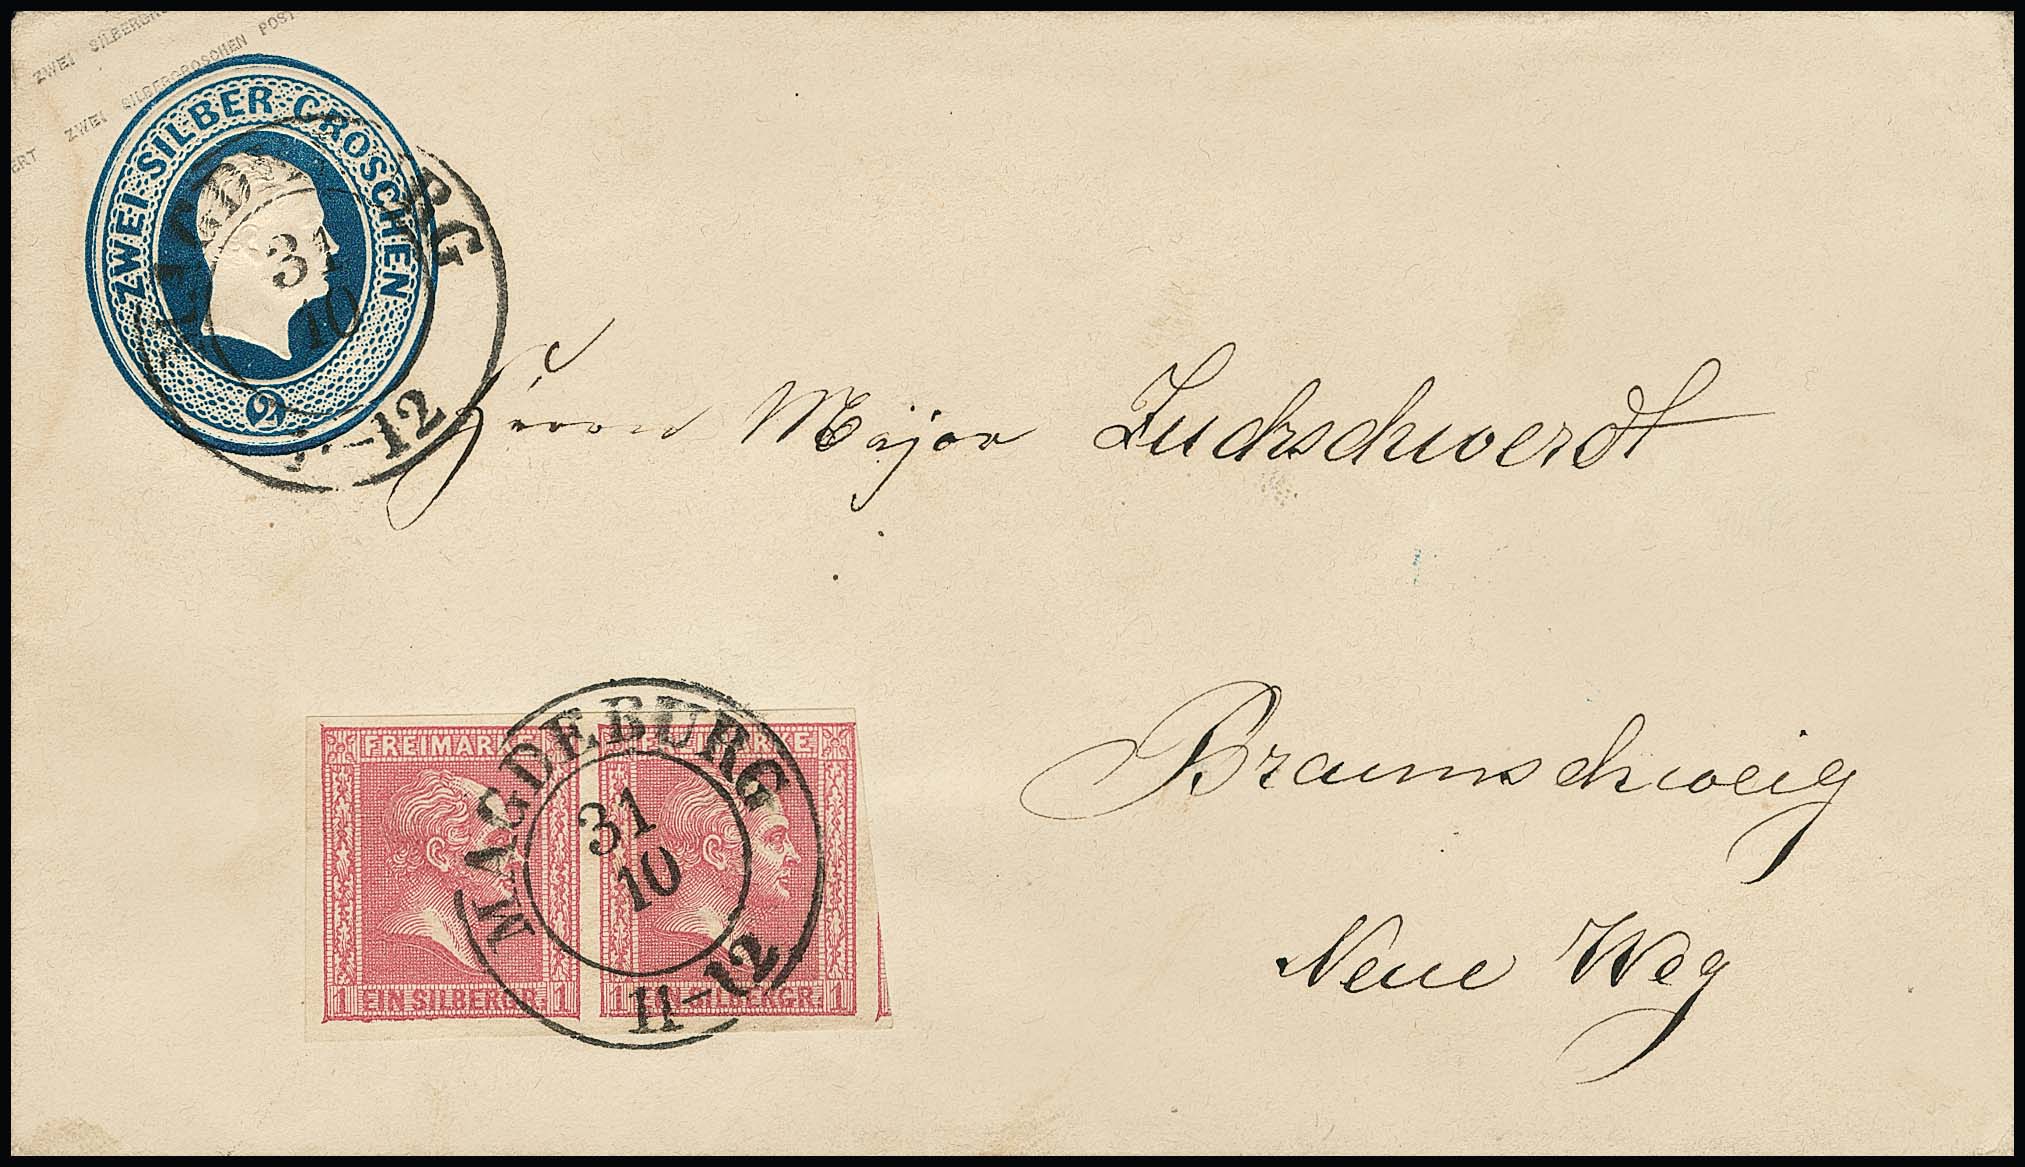 ZWEI SILBERGR
ZWEI SILBERGROSCHEN POST
ERT
ZWEI·SILBER·GROSCHEN
2
MAGDEBURG
31
10
11-12
Herrn Major Luchschwerdt
Braunschweig
Neue Weg
FREIMARKE FREIMARKE
1 EIN SILBERGR. 1 1 EIN SILBERGR. 1
MAGDEBURG
31
10
11-12